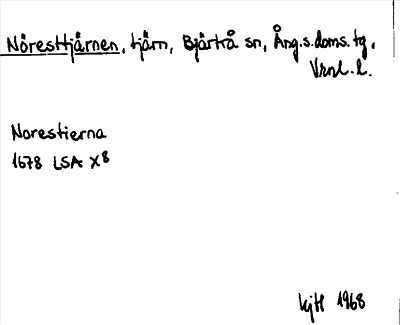 Nöresttjärnen, tjärn, Bjärtrå sn, Ång.s.doms.tg.
Vrnl. l.
Norestierna
1678 LSA X8
KjH 1968